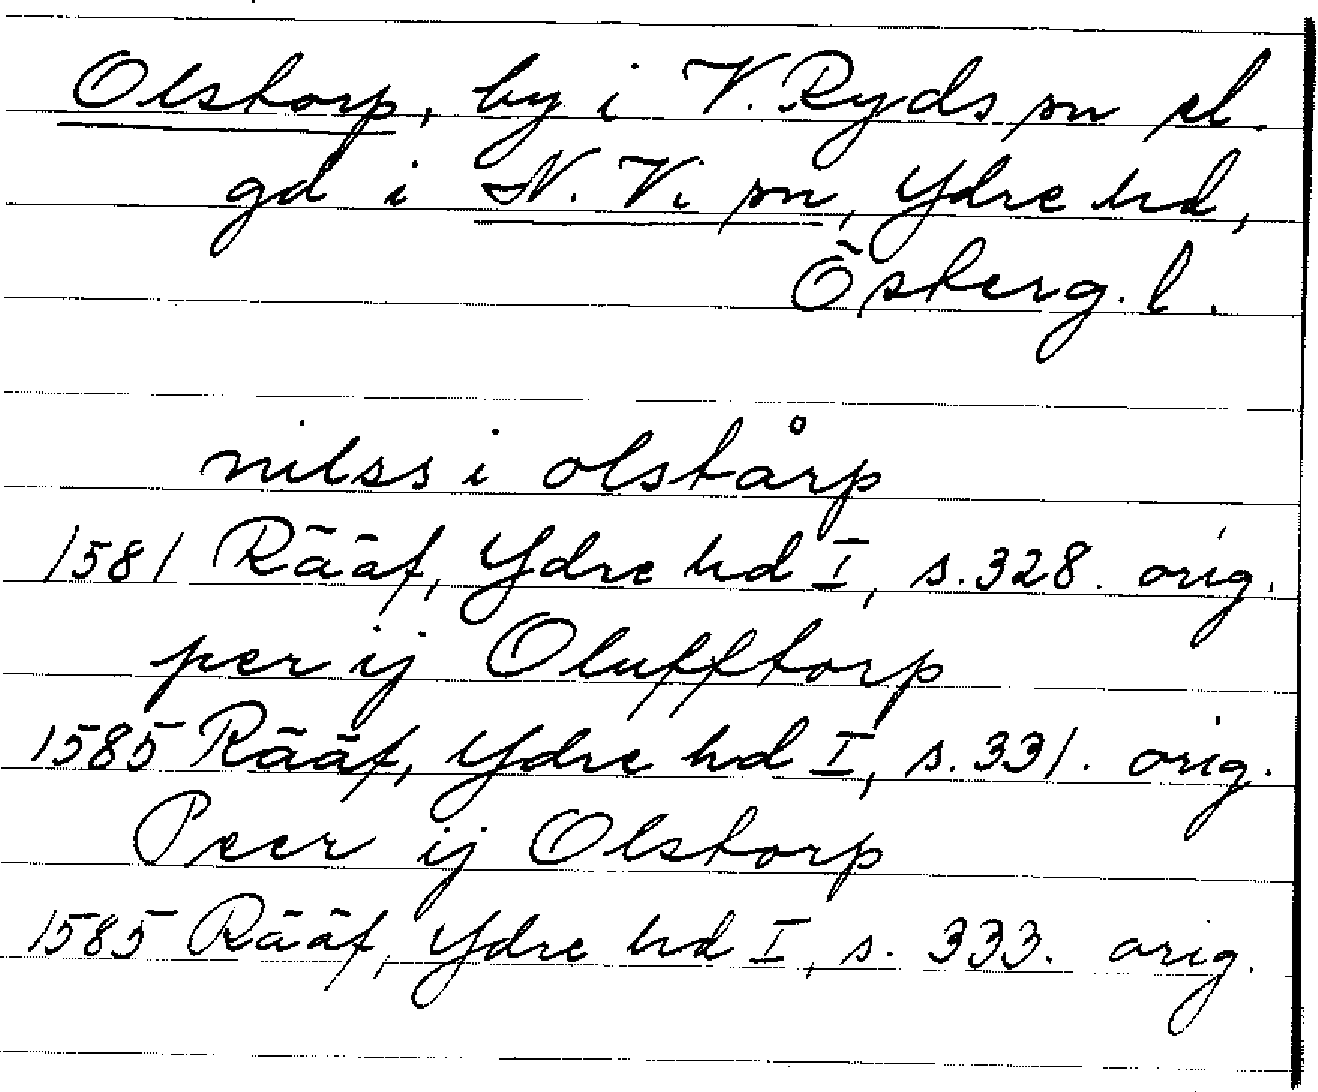 Olstorp, by i V. Ryds sn el.
gd i N. V. sn, Ydre hd,
Österg. l.
nilss i olstårp
1581 Rääf, Ydre hd I, s. 328. orig.
per ij Olufftorp
1585 Rääf, Ydre hd I, s. 331. orig.
Peer ij Olstorp
1585 Rääf, Ydre hd I, s. 333. orig.